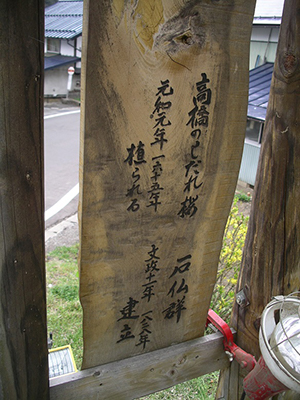 高橋のしだれ桜
元和元年 一六一五年
植られる
石仏群
文政十一年 一八二八年
建立